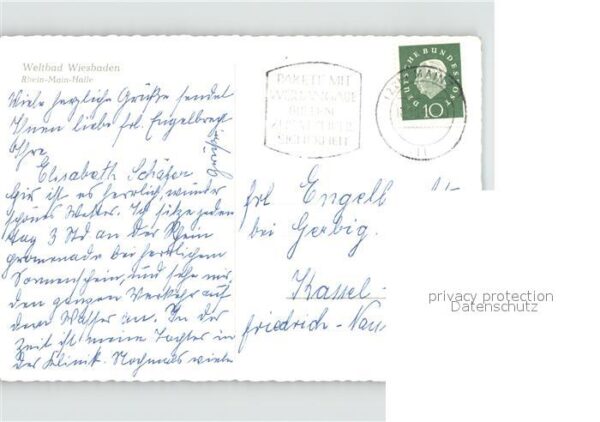 Weltbad Wiesbaden
Rhein-Main-Halle
Viele herzliche Grüße sendet
Ihnen liebe frl. Engelbrecht
Ihre
Elisabeth Schäfer
Hir ist es herrlich, wunder
schönes Wetter. Ich sitze jeden
tag 3 Std an der Rhein
promenade bei herrlichem
Sonnenschein, und sehe mir
den ganzen Verkehr auf
dem Wasser an. In der
Zeit ist meine Tagter in
der Klinik. Nochmals viele
PAKETE MIT
WERTANGABE
BIETEN
SICHERHEIT
DEUTSCHE BUNDESPOST
10
frl Engelb
bei Gerbig.
Kassel-
friedrich-Nau
privacy protection
Datenschutz